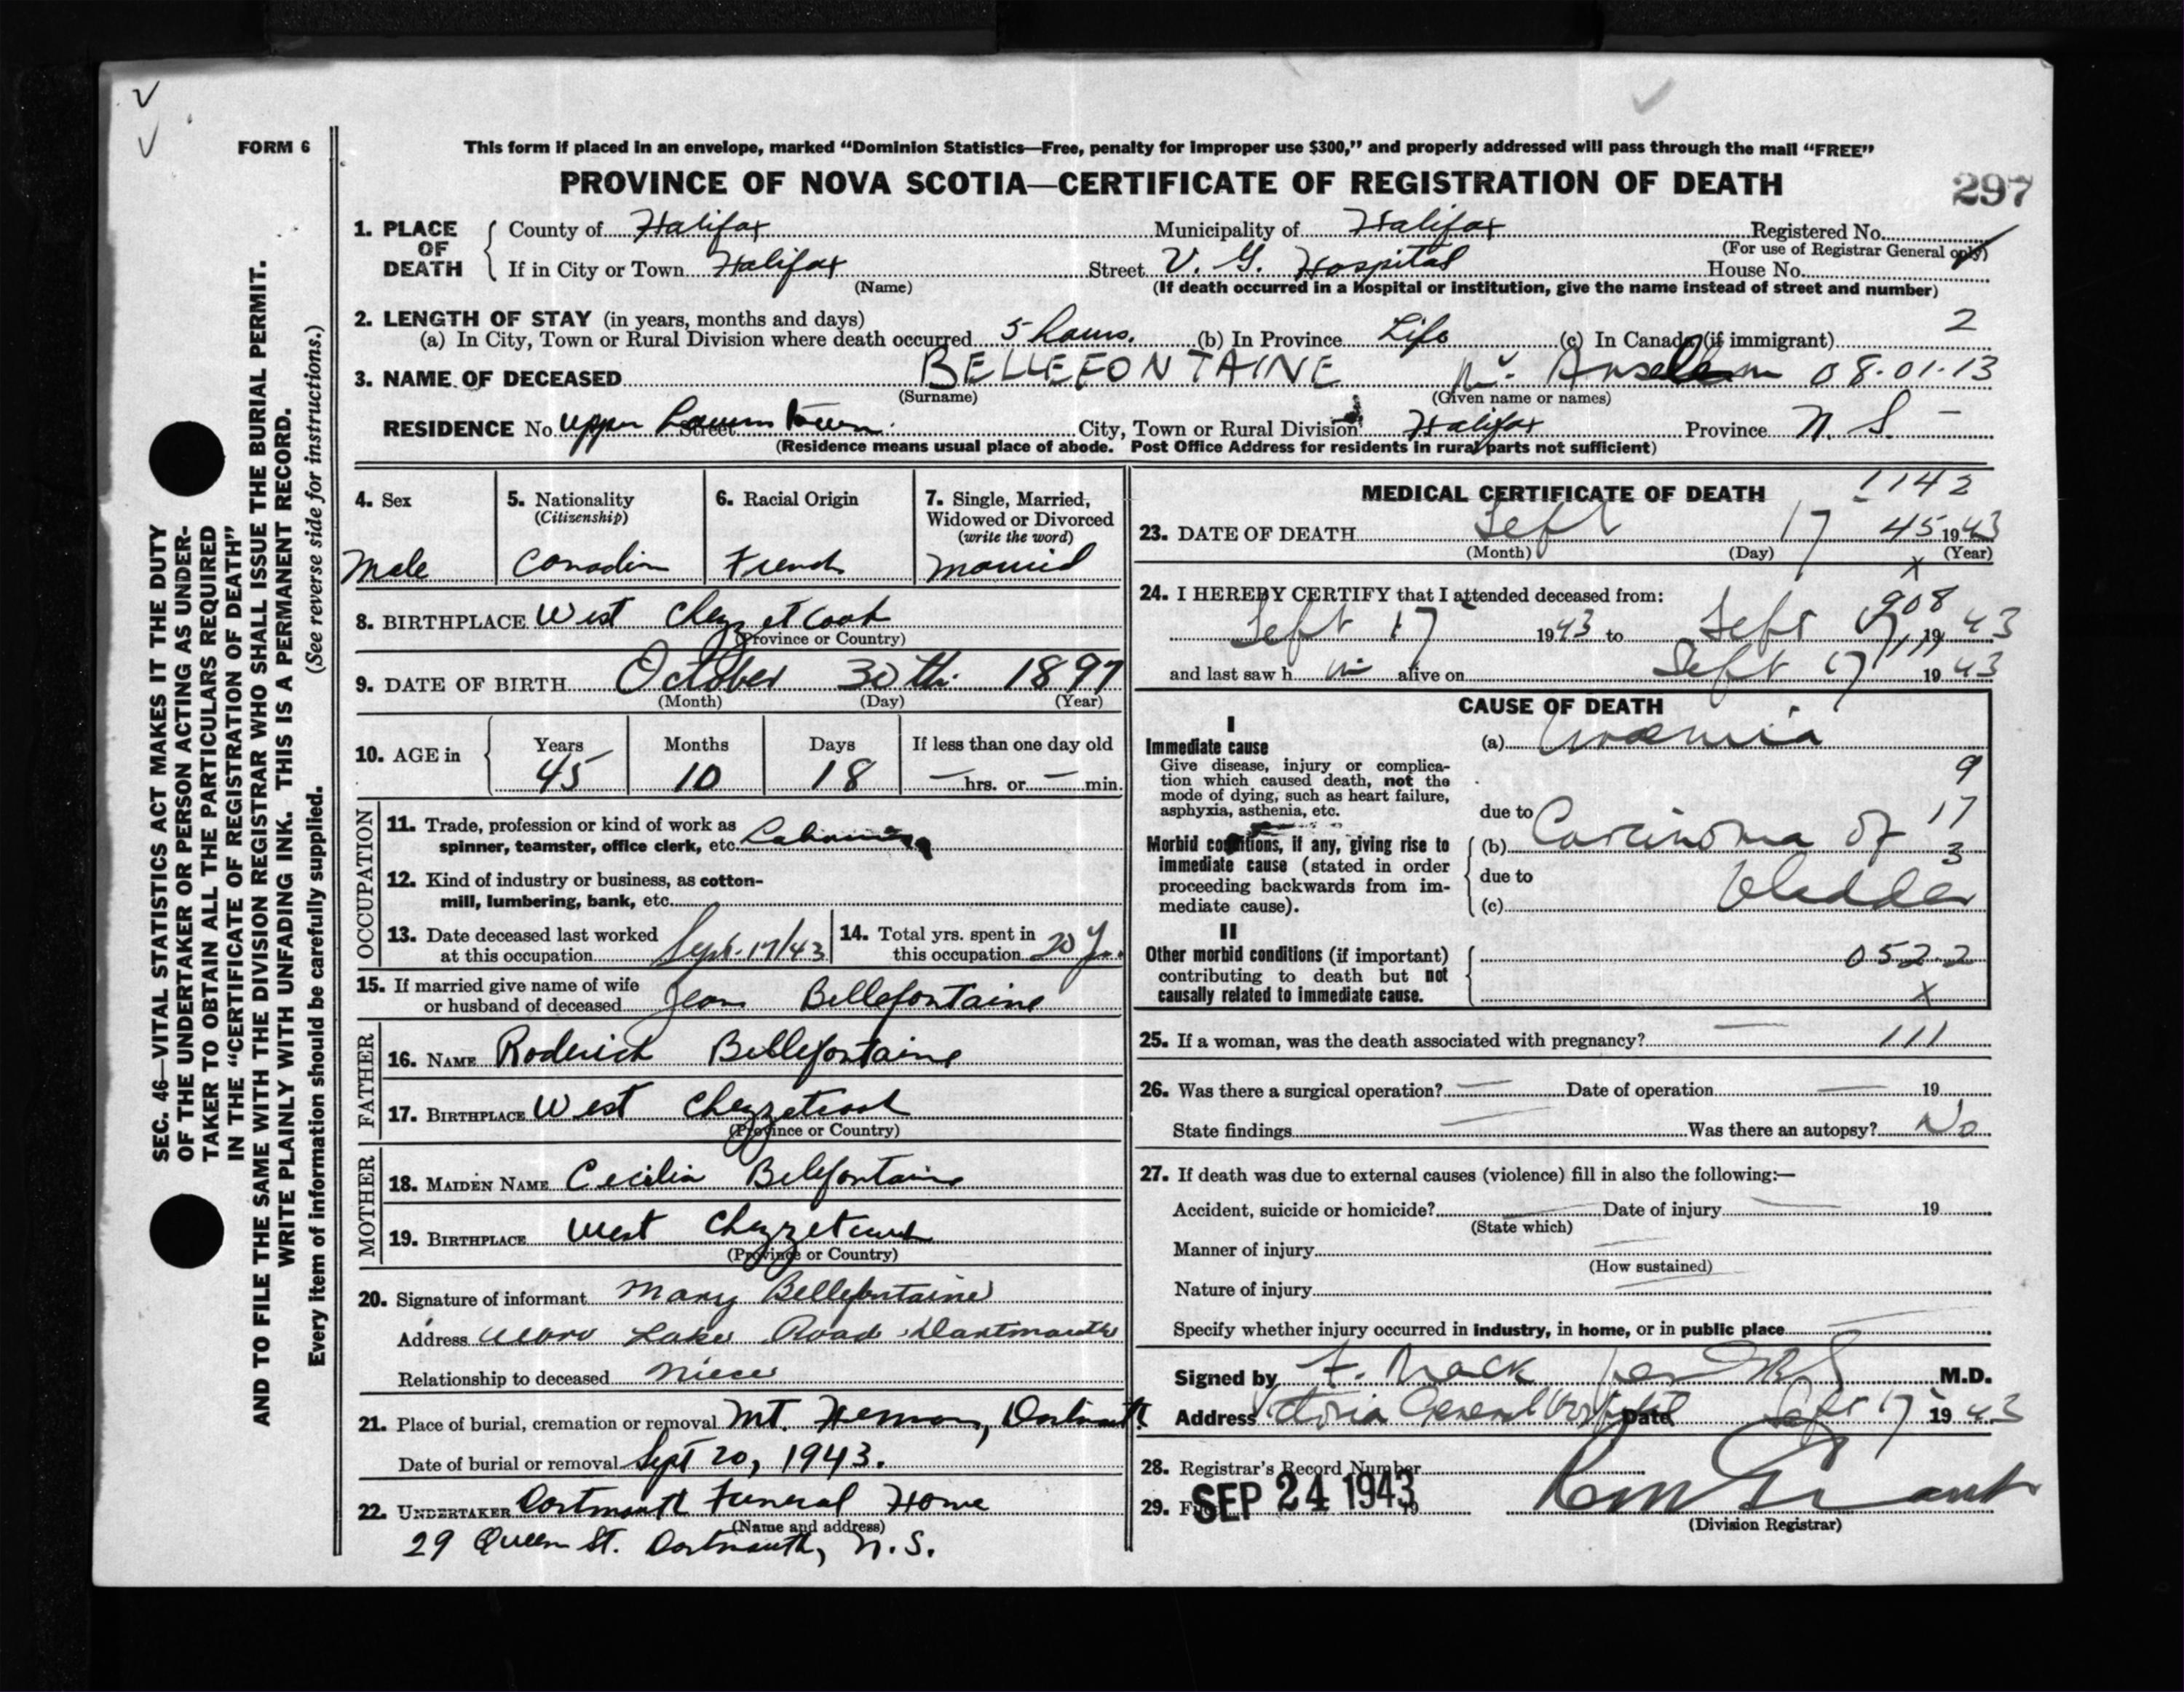 FORM 6
This form if placed in an envelope, marked “Dominion Statistics—Free, penalty for improper use $300,” and properly addressed will pass through the mail “FREE”
PROVINCE OF NOVA SCOTIA—CERTIFICATE OF REGISTRATION OF DEATH
297
1. PLACE OF DEATH
County of Halifax Municipality of Halifax Registered No.
(For use of Registrar General only)
If in City or Town Halifax Street V. G. Hospital House No.
(Name) (If death occurred in a Hospital or institution, give the name instead of street and number)
2. LENGTH OF STAY (in years, months and days) 2
(a) In City, Town or Rural Division where death occurred 5 hours. (b) In Province Life (c) In Canada (if immigrant)
3. NAME OF DECEASED BELLEFONTAINE Mr. Anselem 08.01.13
(Surname) (Given name or names)
RESIDENCE No. Upper Street City, Town or Rural Division Halifax Province N. S. —
(Residence means usual place of abode. Post Office Address for residents in rural parts not sufficient)
4. Sex
Male
5. Nationality
(Citizenship)
Canadian
6. Racial Origin
French
7. Single, Married,
Widowed or Divorced
(write the word)
Married
8. BIRTHPLACE West Chezzetcook
(Province or Country)
9. DATE OF BIRTH October 30th. 1897
(Month) (Day) (Year)
10. AGE in
Years Months Days If less than one day old
45 10 18 — hrs. or — min.
OCCUPATION
11. Trade, profession or kind of work as
spinner, teamster, office clerk, etc.
12. Kind of industry or business, as cotton-
mill, lumbering, bank, etc.
13. Date deceased last worked
at this occupation Sept. 17/43
14. Total yrs. spent in
this occupation 20 yrs.
15. If married give name of wife
or husband of deceased Jean Bellefontaine
FATHER
16. NAME Roderick Bellefontaine
17. BIRTHPLACE West Chezzetcook
(Province or Country)
MOTHER
18. MAIDEN NAME Cecilia Belefontaine
19. BIRTHPLACE West Chezzetcook
(Province or Country)
20. Signature of informant Mary Bellefontaine
Address Lake Road Dartmouth
Relationship to deceased niece
21. Place of burial, cremation or removal Mt. Hermon, Dartmouth
Date of burial or removal Sept 20, 1943.
22. UNDERTAKER Dartmouth Funeral Home
(Name and address)
29 Queen St. Dartmouth, N.S.
MEDICAL CERTIFICATE OF DEATH
1142
23. DATE OF DEATH Sept 17 45 1943
(Month) (Day) (Year)
x
24. I HEREBY CERTIFY that I attended deceased from:
908
Sept 17 1943 to Sept 17, 1943
and last saw h im alive on Sept 17 1943
CAUSE OF DEATH
I
Immediate cause
Give disease, injury or complica-
tion which caused death, not the
mode of dying, such as heart failure,
asphyxia, asthenia, etc.
(a) Uraemia
9
due to
17
Morbid conditions, if any, giving rise to
immediate cause (stated in order
proceeding backwards from im-
mediate cause).
(b) Carcinoma of
3
due to
(c) bladder
II
Other morbid conditions (if important)
contributing to death but not
causally related to immediate cause.
0522
x
25. If a woman, was the death associated with pregnancy? — 111
26. Was there a surgical operation? — Date of operation — 19
State findings — Was there an autopsy? No
27. If death was due to external causes (violence) fill in also the following:—
Accident, suicide or homicide? — Date of injury — 19
(State which)
Manner of injury —
(How sustained)
Nature of injury —
Specify whether injury occurred in industry, in home, or in public place —
Signed by F. Mack per M.D.
Address Victoria General Hospital Date Sept 17 1943
28. Registrar's Record Number
29. Filed SEP 24 1943 19
(Division Registrar)
SEC. 46—VITAL STATISTICS ACT MAKES IT THE DUTY
OF THE UNDERTAKER OR PERSON ACTING AS UNDER-
TAKER TO OBTAIN ALL THE PARTICULARS REQUIRED
IN THE “CERTIFICATE OF REGISTRATION OF DEATH”
AND TO FILE THE SAME WITH THE DIVISION REGISTRAR WHO SHALL ISSUE THE BURIAL PERMIT.
WRITE PLAINLY WITH UNFADING INK. THIS IS A PERMANENT RECORD.
Every item of information should be carefully supplied. (See reverse side for instructions.)